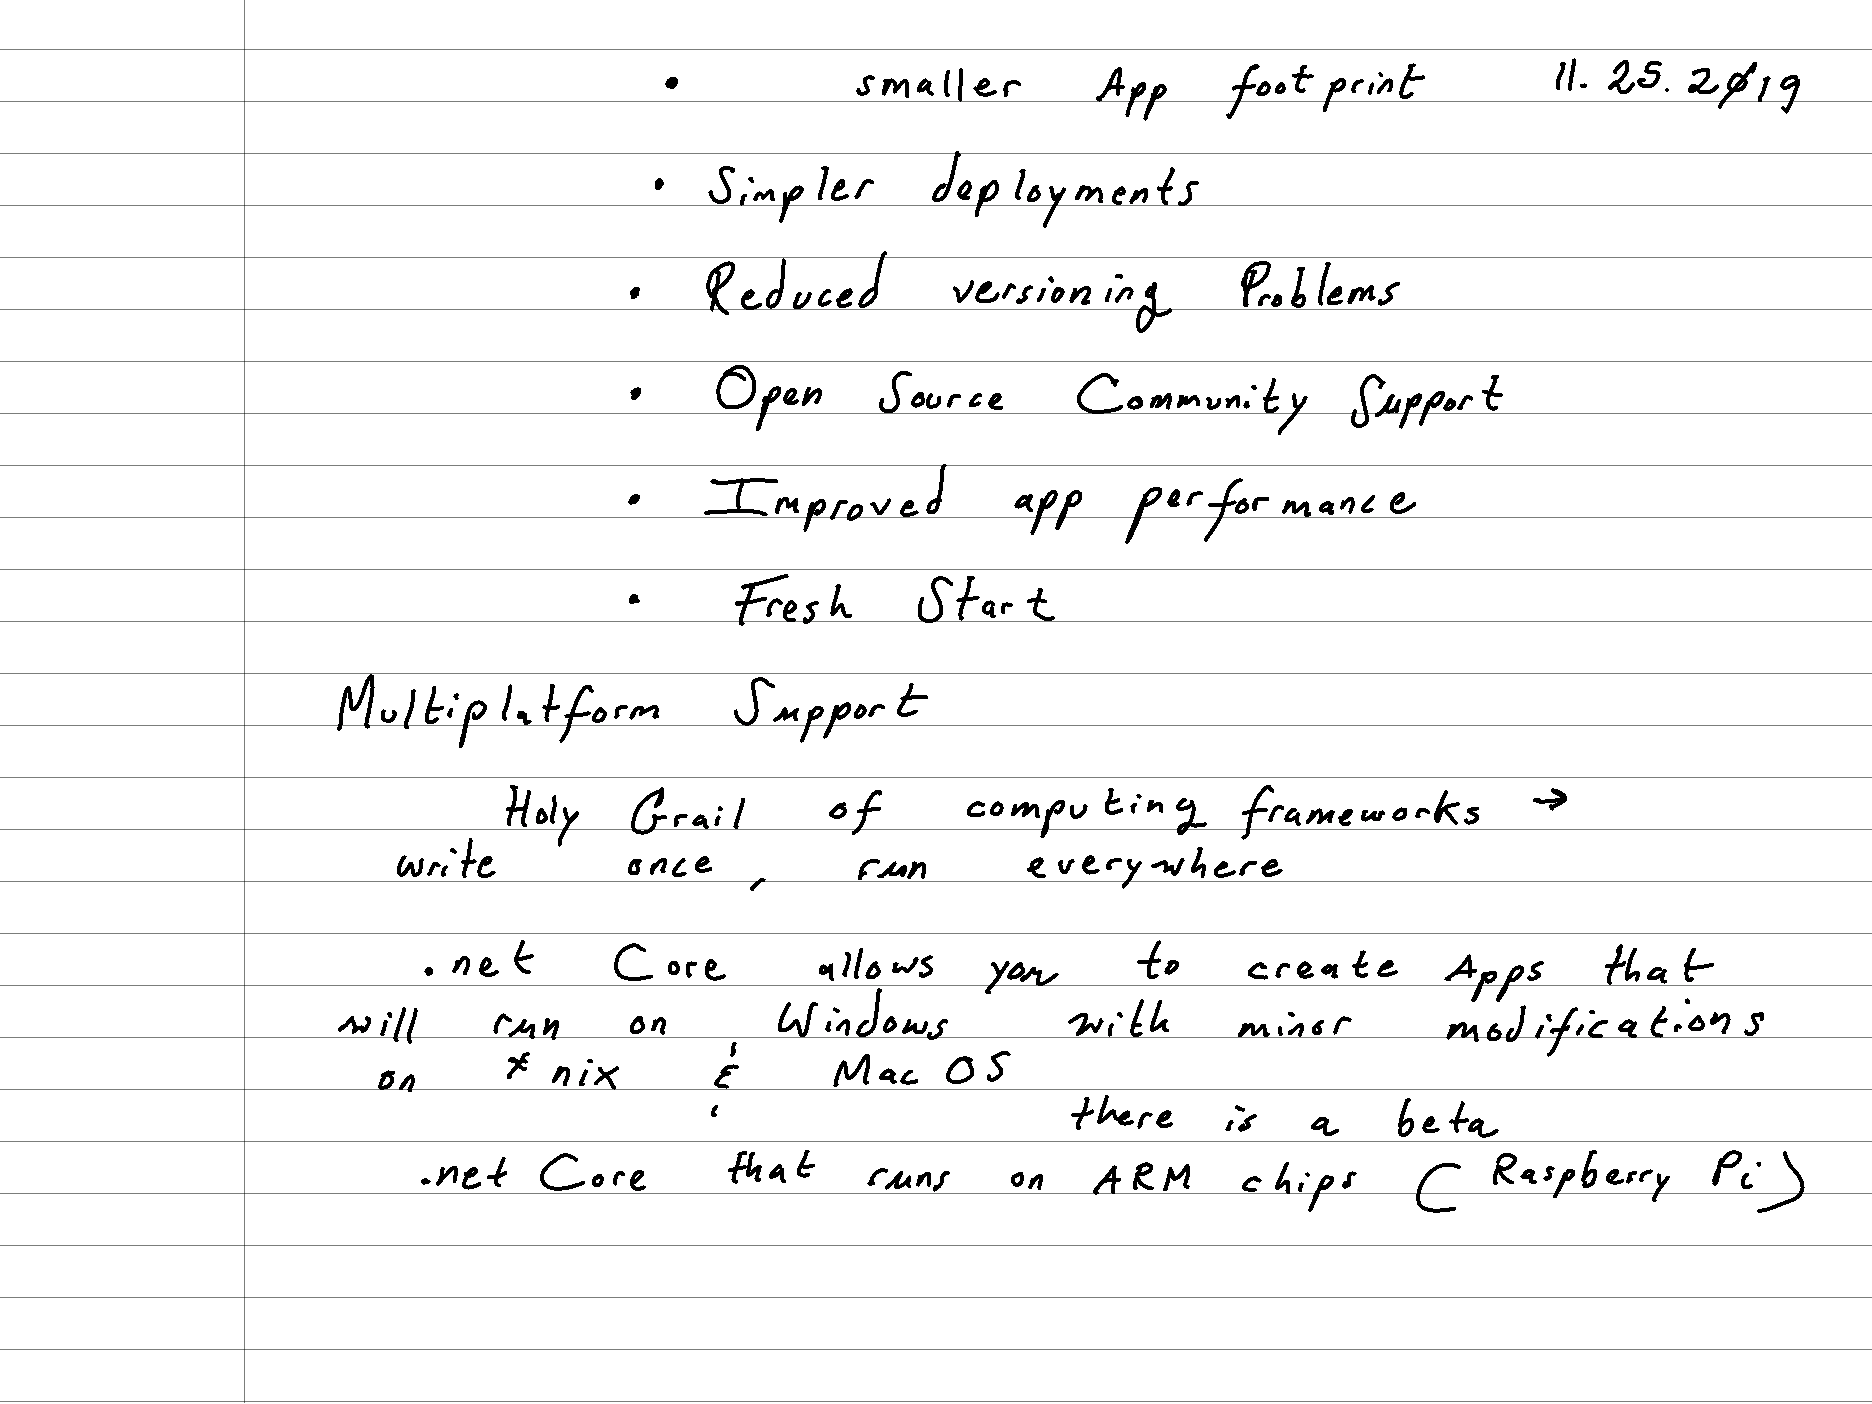 • smaller App footprint 11.25.2019
• Simpler deployments
• Reduced versioning Problems
• Open Source Community Support
• Improved app performance
• Fresh Start
Multiplatform Support
Holy Grail of computing frameworks →
write once, run everywhere
.net Core allows you to create Apps that
will run on Windows with minor modifications
on *nix & Mac OS
there is a beta
.net Core that runs on ARM chips (Raspberry Pi)